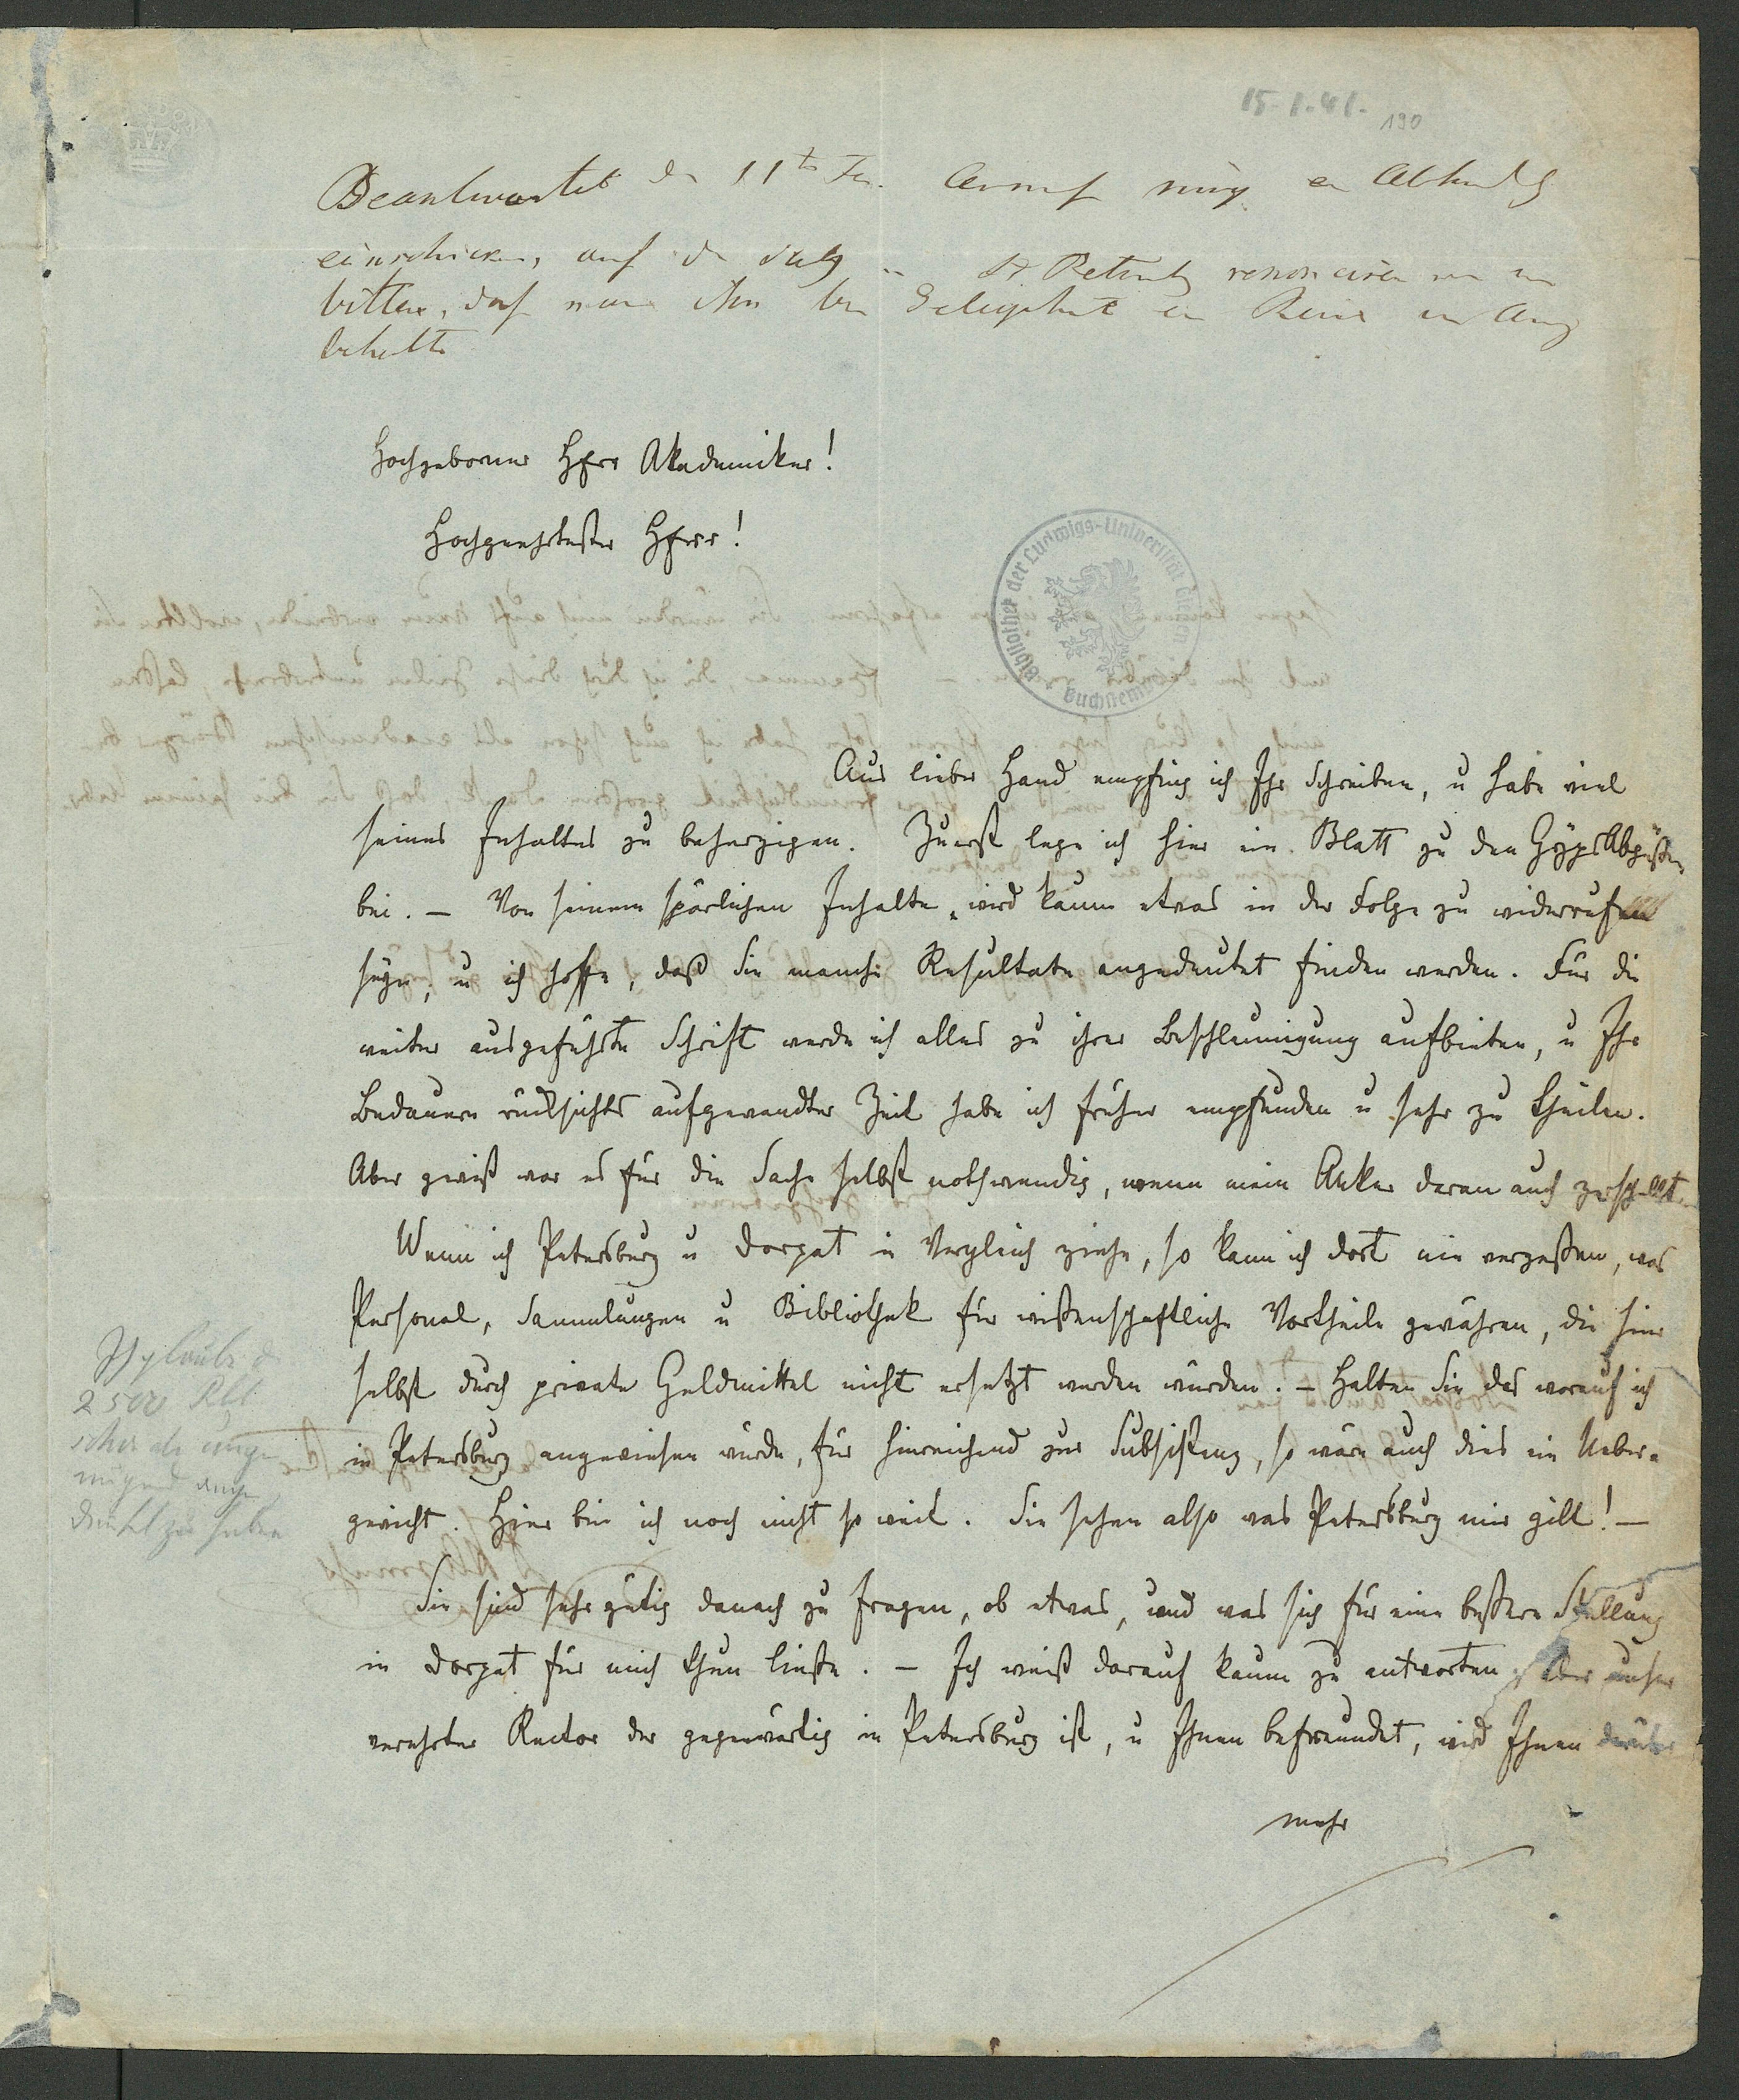 15-1.41.
190
Beantwortet d 11t
einschicken, auf d St Petersb renonciren
bitten, daß man ihn bei Gelegenheit Reise
behalte
Hochgeborner Herr Akademiker!
Hochgeehrtester Herr!
Bibliothek der Ludwigs-Universität Giessen
Aus lieber Hand empfing ich Ihr Schreiben, u habe viel
seines Inhaltes zu beherzigen. Zuerst lege ich hier ein Blatt zu den Gÿpsabgüßen
bei. – Von seinem spärlichen Inhalte wird kaum etwas in der Folge zu widerrufen
seyn, u ich hoffe, daß Sie manche Resultate angedeutet finden werden. Für die
weiter ausgeführte Schrift werde ich alles zu ihrer Beschleunigung aufbieten, u Ihr
Bedauern rücksichts aufgewandter Zeit habe ich früher empfunden u sehr zu theilen.
Aber gewiß war es für die Sache selbst nothwendig, wenn mein Anker daran auch zerschellt.
Wenn ich Petersburg u Dorpat in Vergleich ziehe, so kann ich dort nie vergeßen, was
Personal, Sammlungen u Bibliothek für wißenschaftliche Vortheile gewähren, die hier
selbst durch private Geldmittel nicht ersetzt werden würden. – Halten Sie das worauf ich
in Petersburg angewiesen würde, für hinreichend zur Subsistenz, so wäre auch dies ein Ueber-
gewicht. Hier bin ich noch nicht so weit. Sie sehen also was Petersburg mir gilt! –
Sie sind sehr gütig danach zu fragen, ob etwas, und was sich für eine beßere Stellung
in Dorpat für mich thun ließe. – Ich weiß darauf kaum zu antworten, aber unser
verehrter Rector der gegenwärtig in Petersburg ist, u Ihnen befreundet, wird Ihnen darüber
mehr
Ich glaube
2500 Rbl
schon als unge-
nügend ange-
deutet zu haben